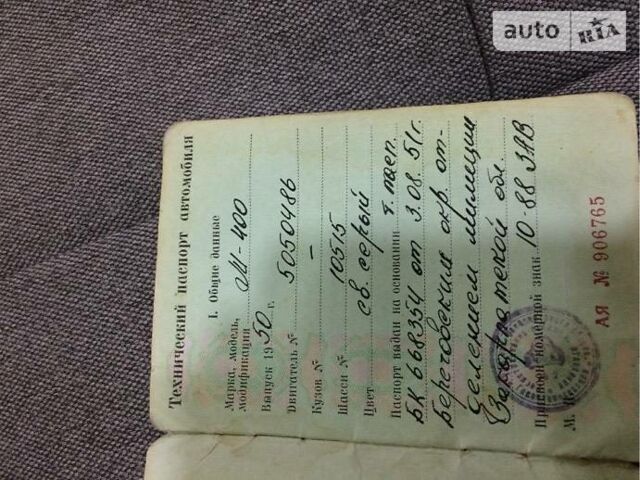 auto RIA
Технический паспорт автомобиля
I. Общие данные
Марка, модель,
модификации М-400
Выпуск 1950 г.
Двигатель № 5050486
Кузов № –
Шасси № 10515
Цвет св. серый
Паспорт выдан на основании т. пасп.
БК 668354 от 3.08.51г.
Береговским окр. от-
делением милиции
Закарпатской обл.
Присвоен номерной знак 10-88 ЗАВ
М.
АЯ № 906765